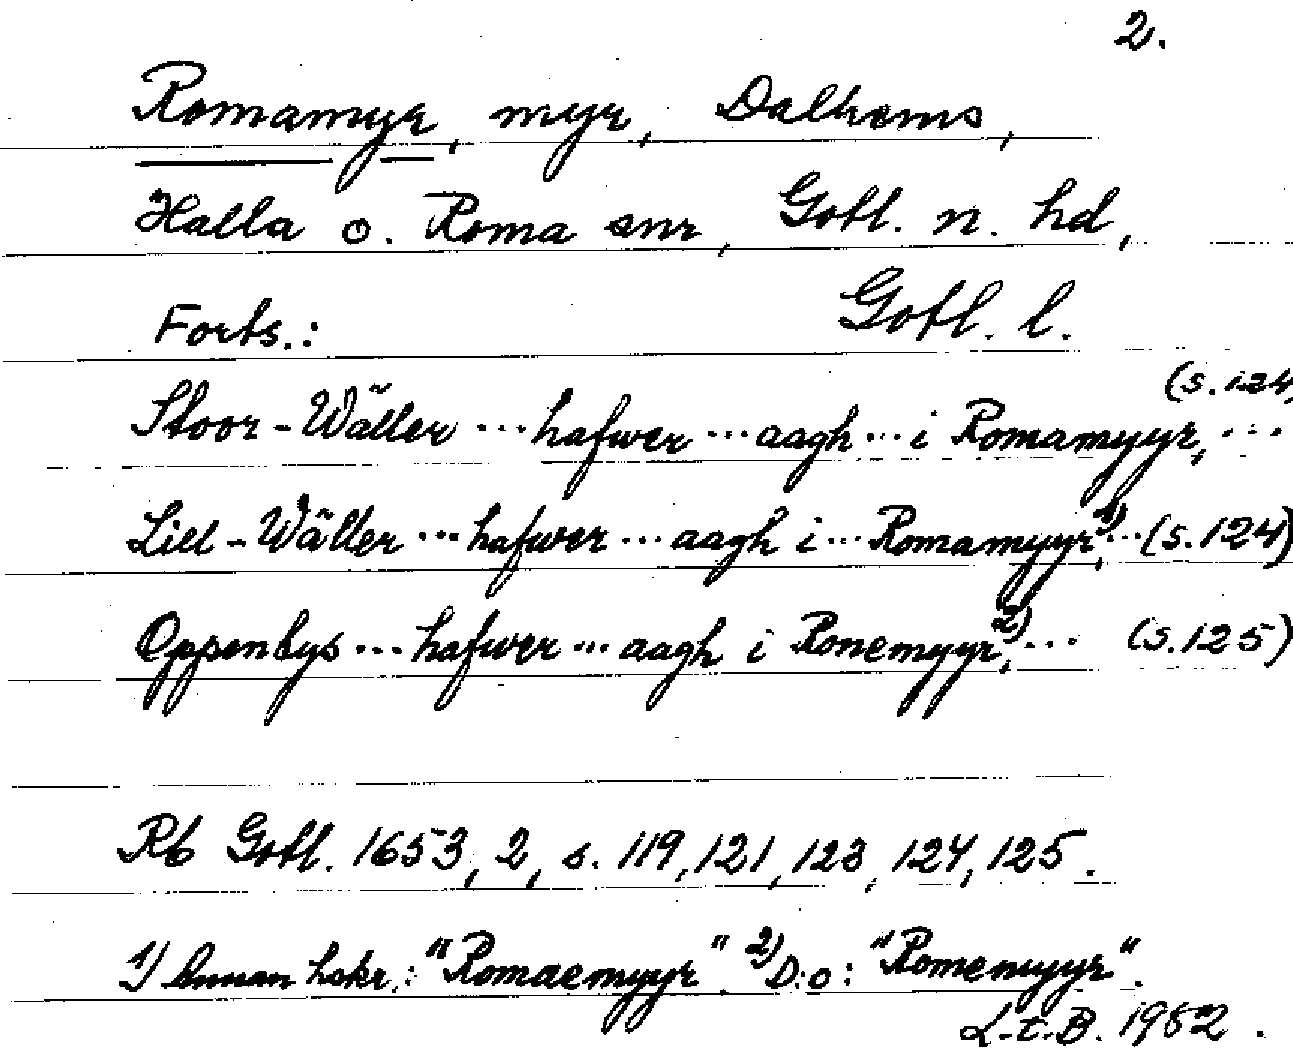 2.
Romamyr, myr, Dalhems,
Halla o. Roma snr, Gotl. n. hd,
Forts.: Gotl. l.
(s. 124,
Stoor-Wäller ... hafwer ... aagh ... i Romamyyr, ...
Lill-Wäller ... hafwer ... aagh i ... Romamyyr,1) ... (s. 124)
Oppenbys ... hafwer ... aagh i Ronemyyr,2) ... (s. 125)
Rb Gotl. 1653, 2, s. 119, 121, 123, 124, 125.
1) Annan hskr.: "Romaemyyr". 2) D:o: "Romemyyr".
L.t.B. 1952.